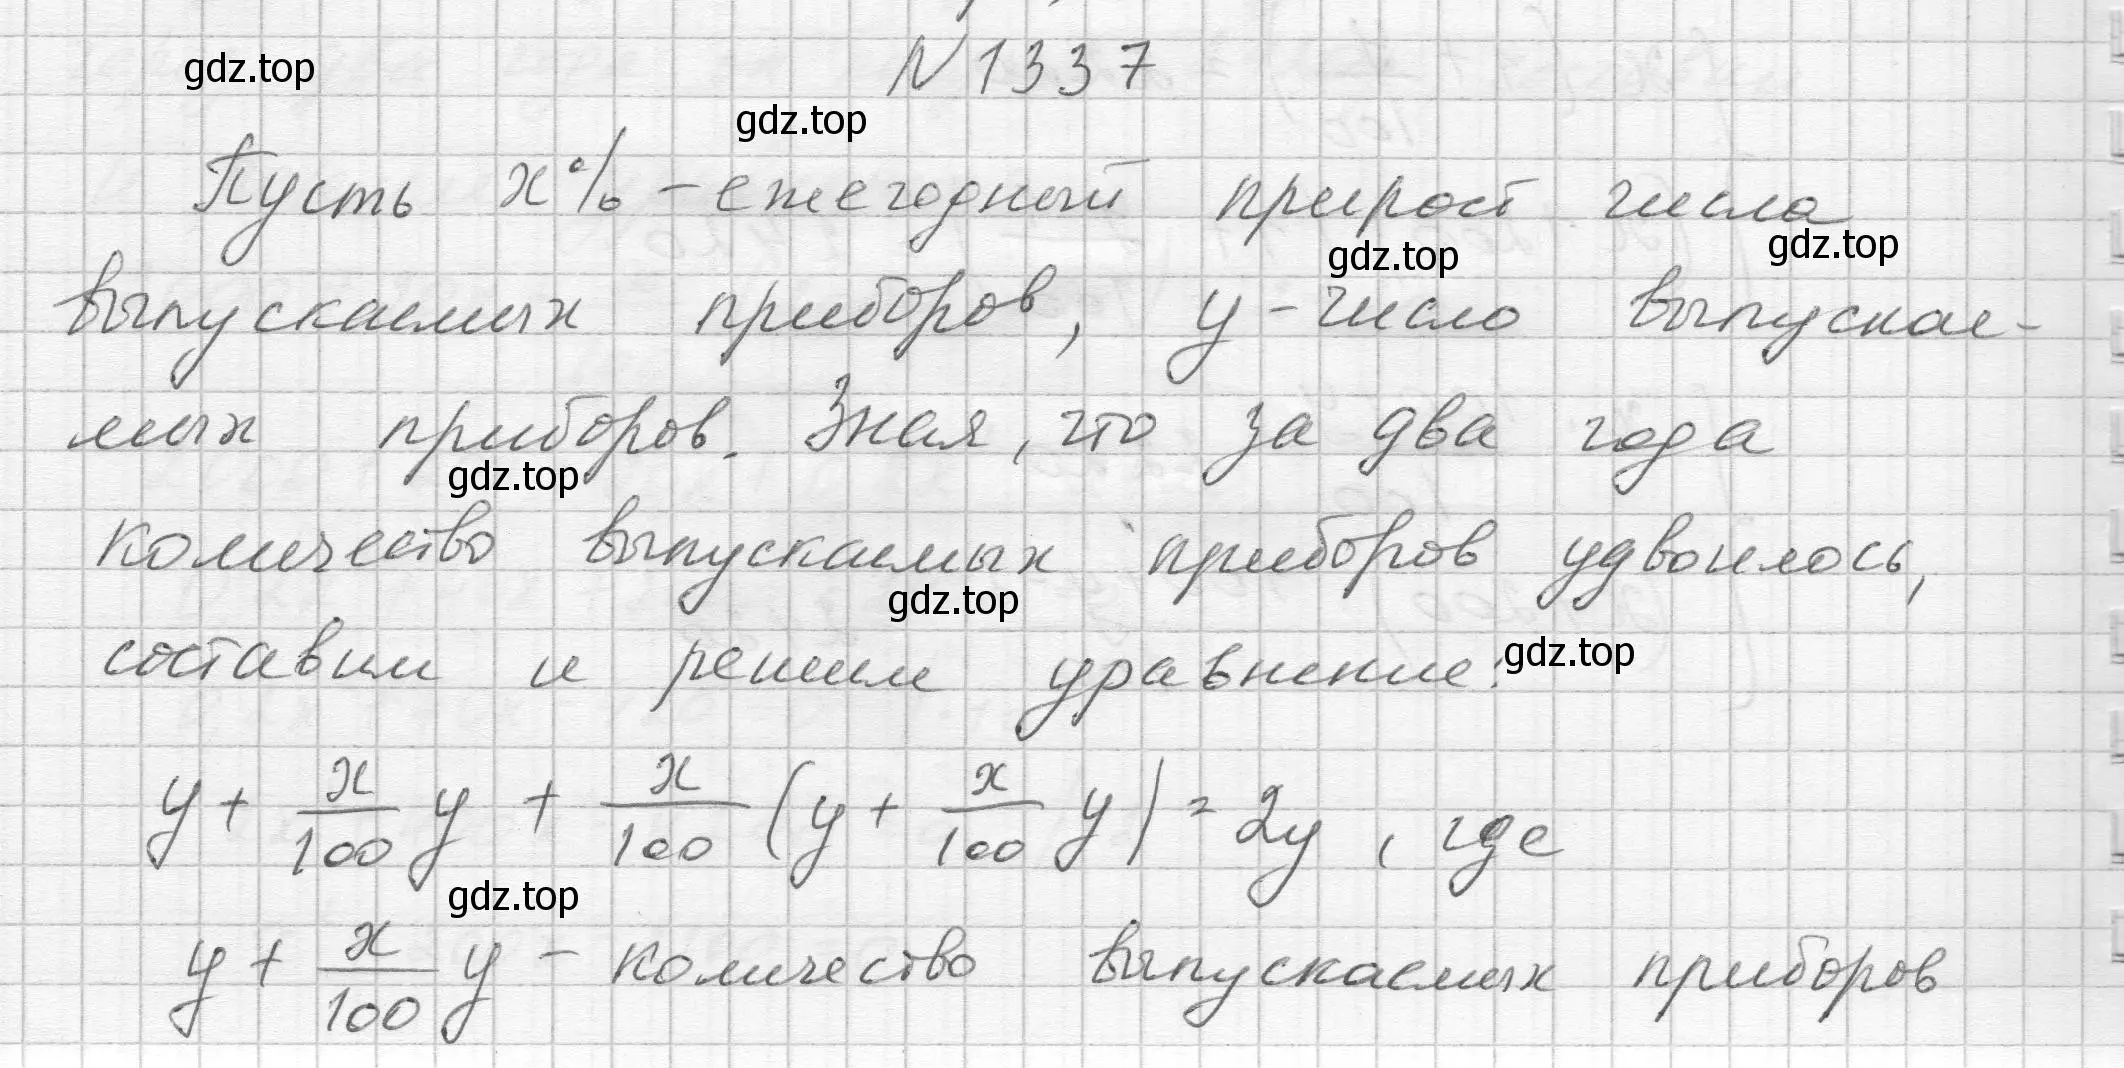 N 1337
Пусть x% - ежегодный прирост числа
выпускаемых приборов, y - число выпускае-
мых приборов. Зная, что за два года
количество выпускаемых приборов удвоилось,
составим и решим уравнение:
y + x/100 y + x/100 (y + x/100 y) = 2y, где
y + x/100 y - количество выпускаемых приборов
gdz.top
gdz.top
gdz.top
gdz.top
gdz.top
gdz.top
gdz.top
gdz.top